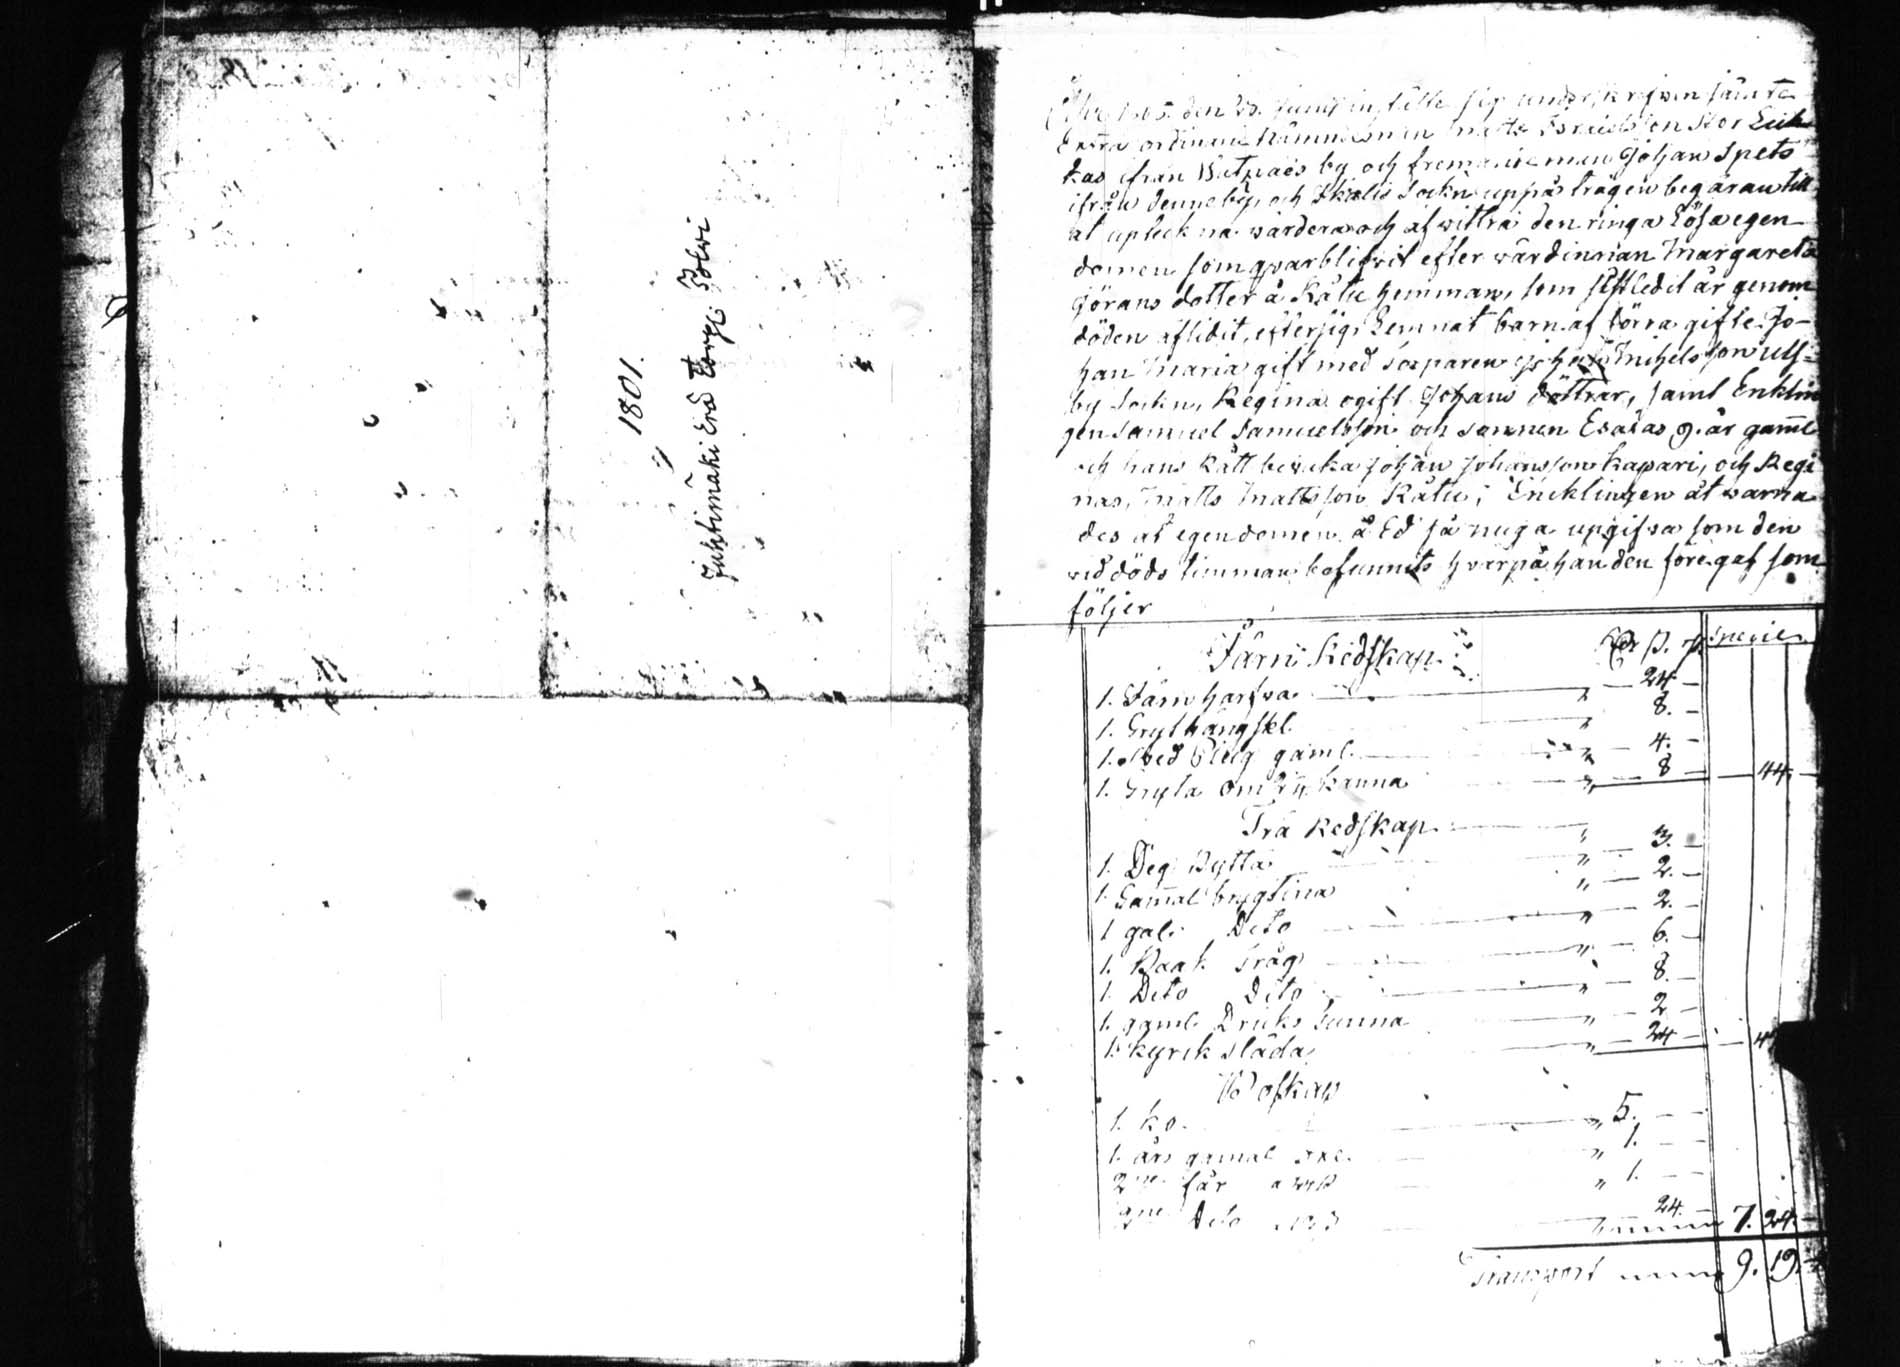 1801.
Juhtimäki Erä Torp: Pölvi
den 23. Junii instälte sig underskrefwen jämte
Extra ordinarie Nämndeman Matts Israelsson Stor
kas ifrån by och Johan Spets
ifrån denne by, och Ikalis Sockn uppå trägen begäran till
at upteckna värdera och afvittra den ringa lösa egen
domen som qvarblifvit efter värdinnan Margareta
Görans dotter å Kätu hemman, som sistledit år genom
döden aflidit, efter sig lemnat barn af förra gifte Jo-
han Maria gift med Michelsson Ulf-
by Sockn, Regina ogift Johans döttrar, samt Enklin
gen Samuel Samuelsson och sonnen Esaias 9. år gaml
och hans Rätt bevaka Johan Johansson Kapari, och Regi
nas, Matts Mattsson Kätu; Encklingen åt varna
des at egendomen å Ed så noga upgifva som den
vid döds timman befunnits hvarpå han den före gaf som
följer
Järn Redskap Rdr ß. rs. Specie
1. Järn harfva „ 24. –
1. Gryt hängskl „ 8. –
1. gaml „ 4. –
1. Gryta om kanna „ 8 – 44 –
Trä Redskap
1. Deg Bytta „ 3. –
1. Gammal brygtina „ 2. –
1 gal: Dito „ 2. –
1. Baak Tråg „ 6. –
1. Dito Dito „ 8. –
1. gaml. Dricks Tunna „ 2 –
1. Kyrck släda „ 24
Bofkap
1. Ko „ 5. – –
1. års gamal „ 1. – –
2 får „ 1. – –
Dito 24. – 7. 24. –
Transport 9. 19.